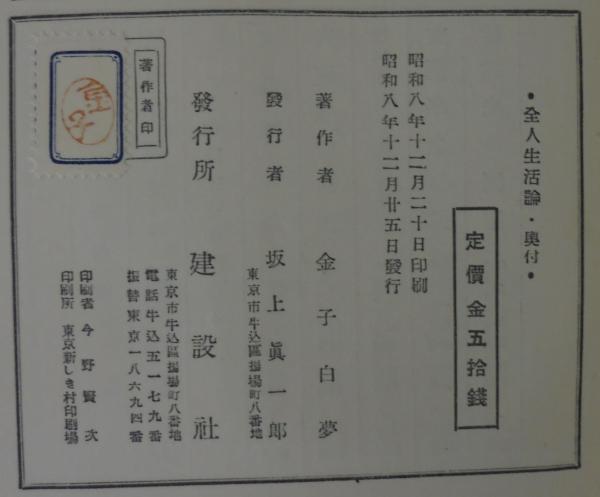 ・全人生活論・奥付・
定價金五拾錢
昭和八年十二月二十日印刷
昭和八年十二月廿五日發行
著作者　金子白夢
發行者　坂上眞一郎
東京市牛込區揚場町八番地
發行所　建設社
東京市牛込區揚場町八番地
電話牛込五一七九番
振替東京一八六九四番
印刷者　今野賢次
印刷所　東京新しき村印刷場
著作者印